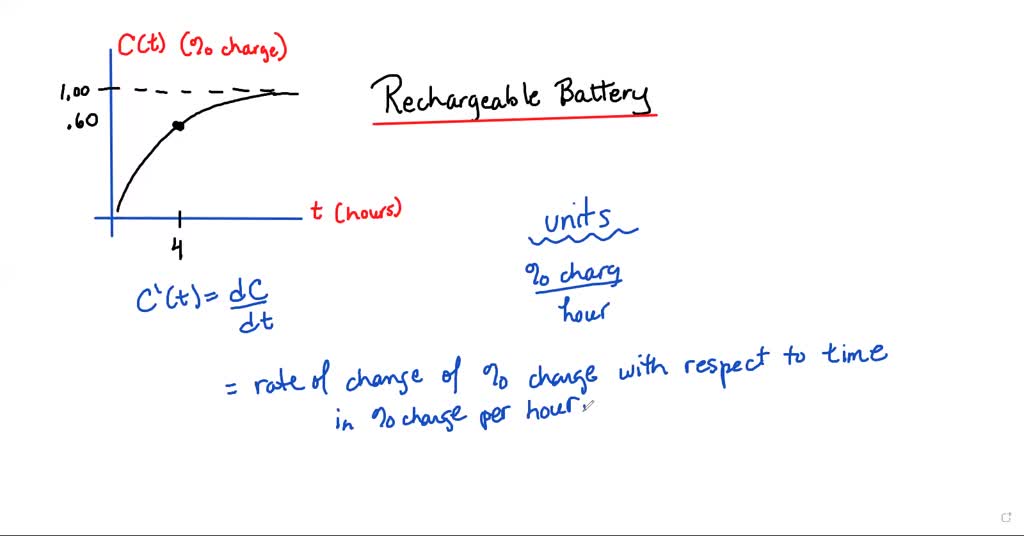 C(t) (% charge)
1.00
.60
Rechargeable Battery
t (hours)
4
units
% charg
hour
C'(t) = dC
dt
= rate of change of % charge with respect to time
in % charge per hour.